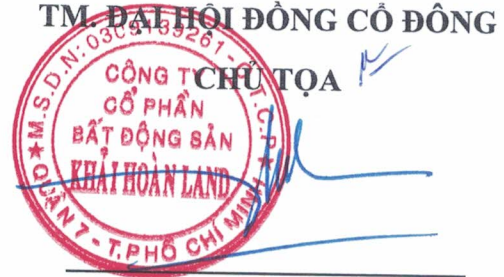 TM. ĐẠI HỘI ĐỒNG CỔ ĐÔNG
CHỦ TỌA
M.S.D.N: C.T.C.P
CÔNG TY
CỔ PHẦN
BẤT ĐỘNG SẢN
KHẢI HOÀN LAND
QUẬN 7 - T.PHỐ CHÍ MINH